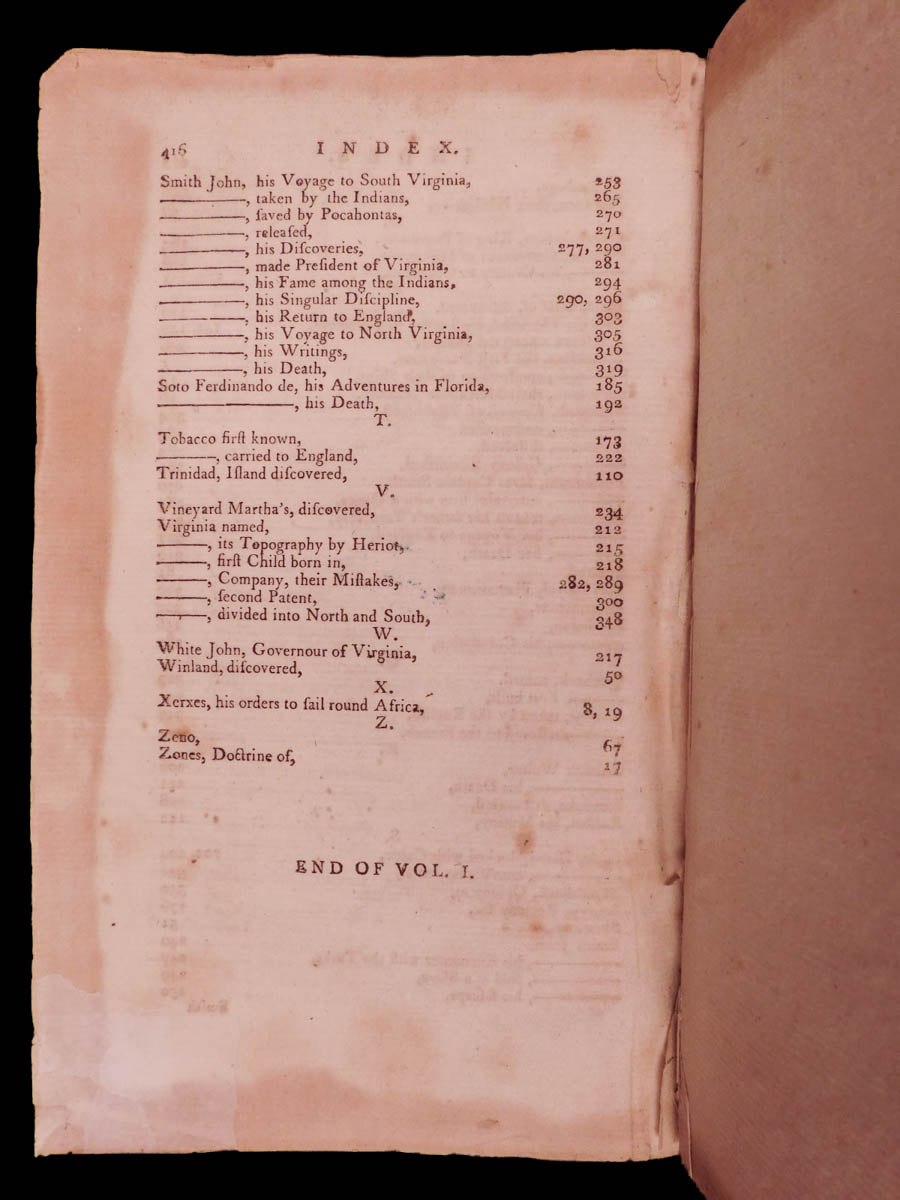 416 INDEX.
Smith John, his Voyage to South Virginia, 253
———, taken by the Indians, 265
———, ſaved by Pocahontas, 270
———, releaſed, 271
———, his Diſcoveries, 277, 290
———, made Preſident of Virginia, 281
———, his Fame among the Indians, 294
———, his Singular Diſcipline, 290, 296
———, his Return to England, 303
———, his Voyage to North Virginia, 305
———, his Writings, 316
———, his Death, 319
Soto Ferdinando de, his Adventures in Florida, 185
—————, his Death, 192
T.
Tobacco firſt known, 173
———, carried to England, 222
Trinidad, Iſland diſcovered, 110
V.
Vineyard Martha's, diſcovered, 234
Virginia named, 212
———, its Topography by Heriot, 215
———, firſt Child born in, 218
———, Company, their Miſtakes, 282, 289
———, ſecond Patent, 300
———, divided into North and South, 348
W.
White John, Governour of Virginia, 217
Winland, diſcovered, 50
X.
Xerxes, his orders to ſail round Africa, 8, 19
Z.
Zeno, 67
Zones, Doctrine of, 17
END OF VOL. I.